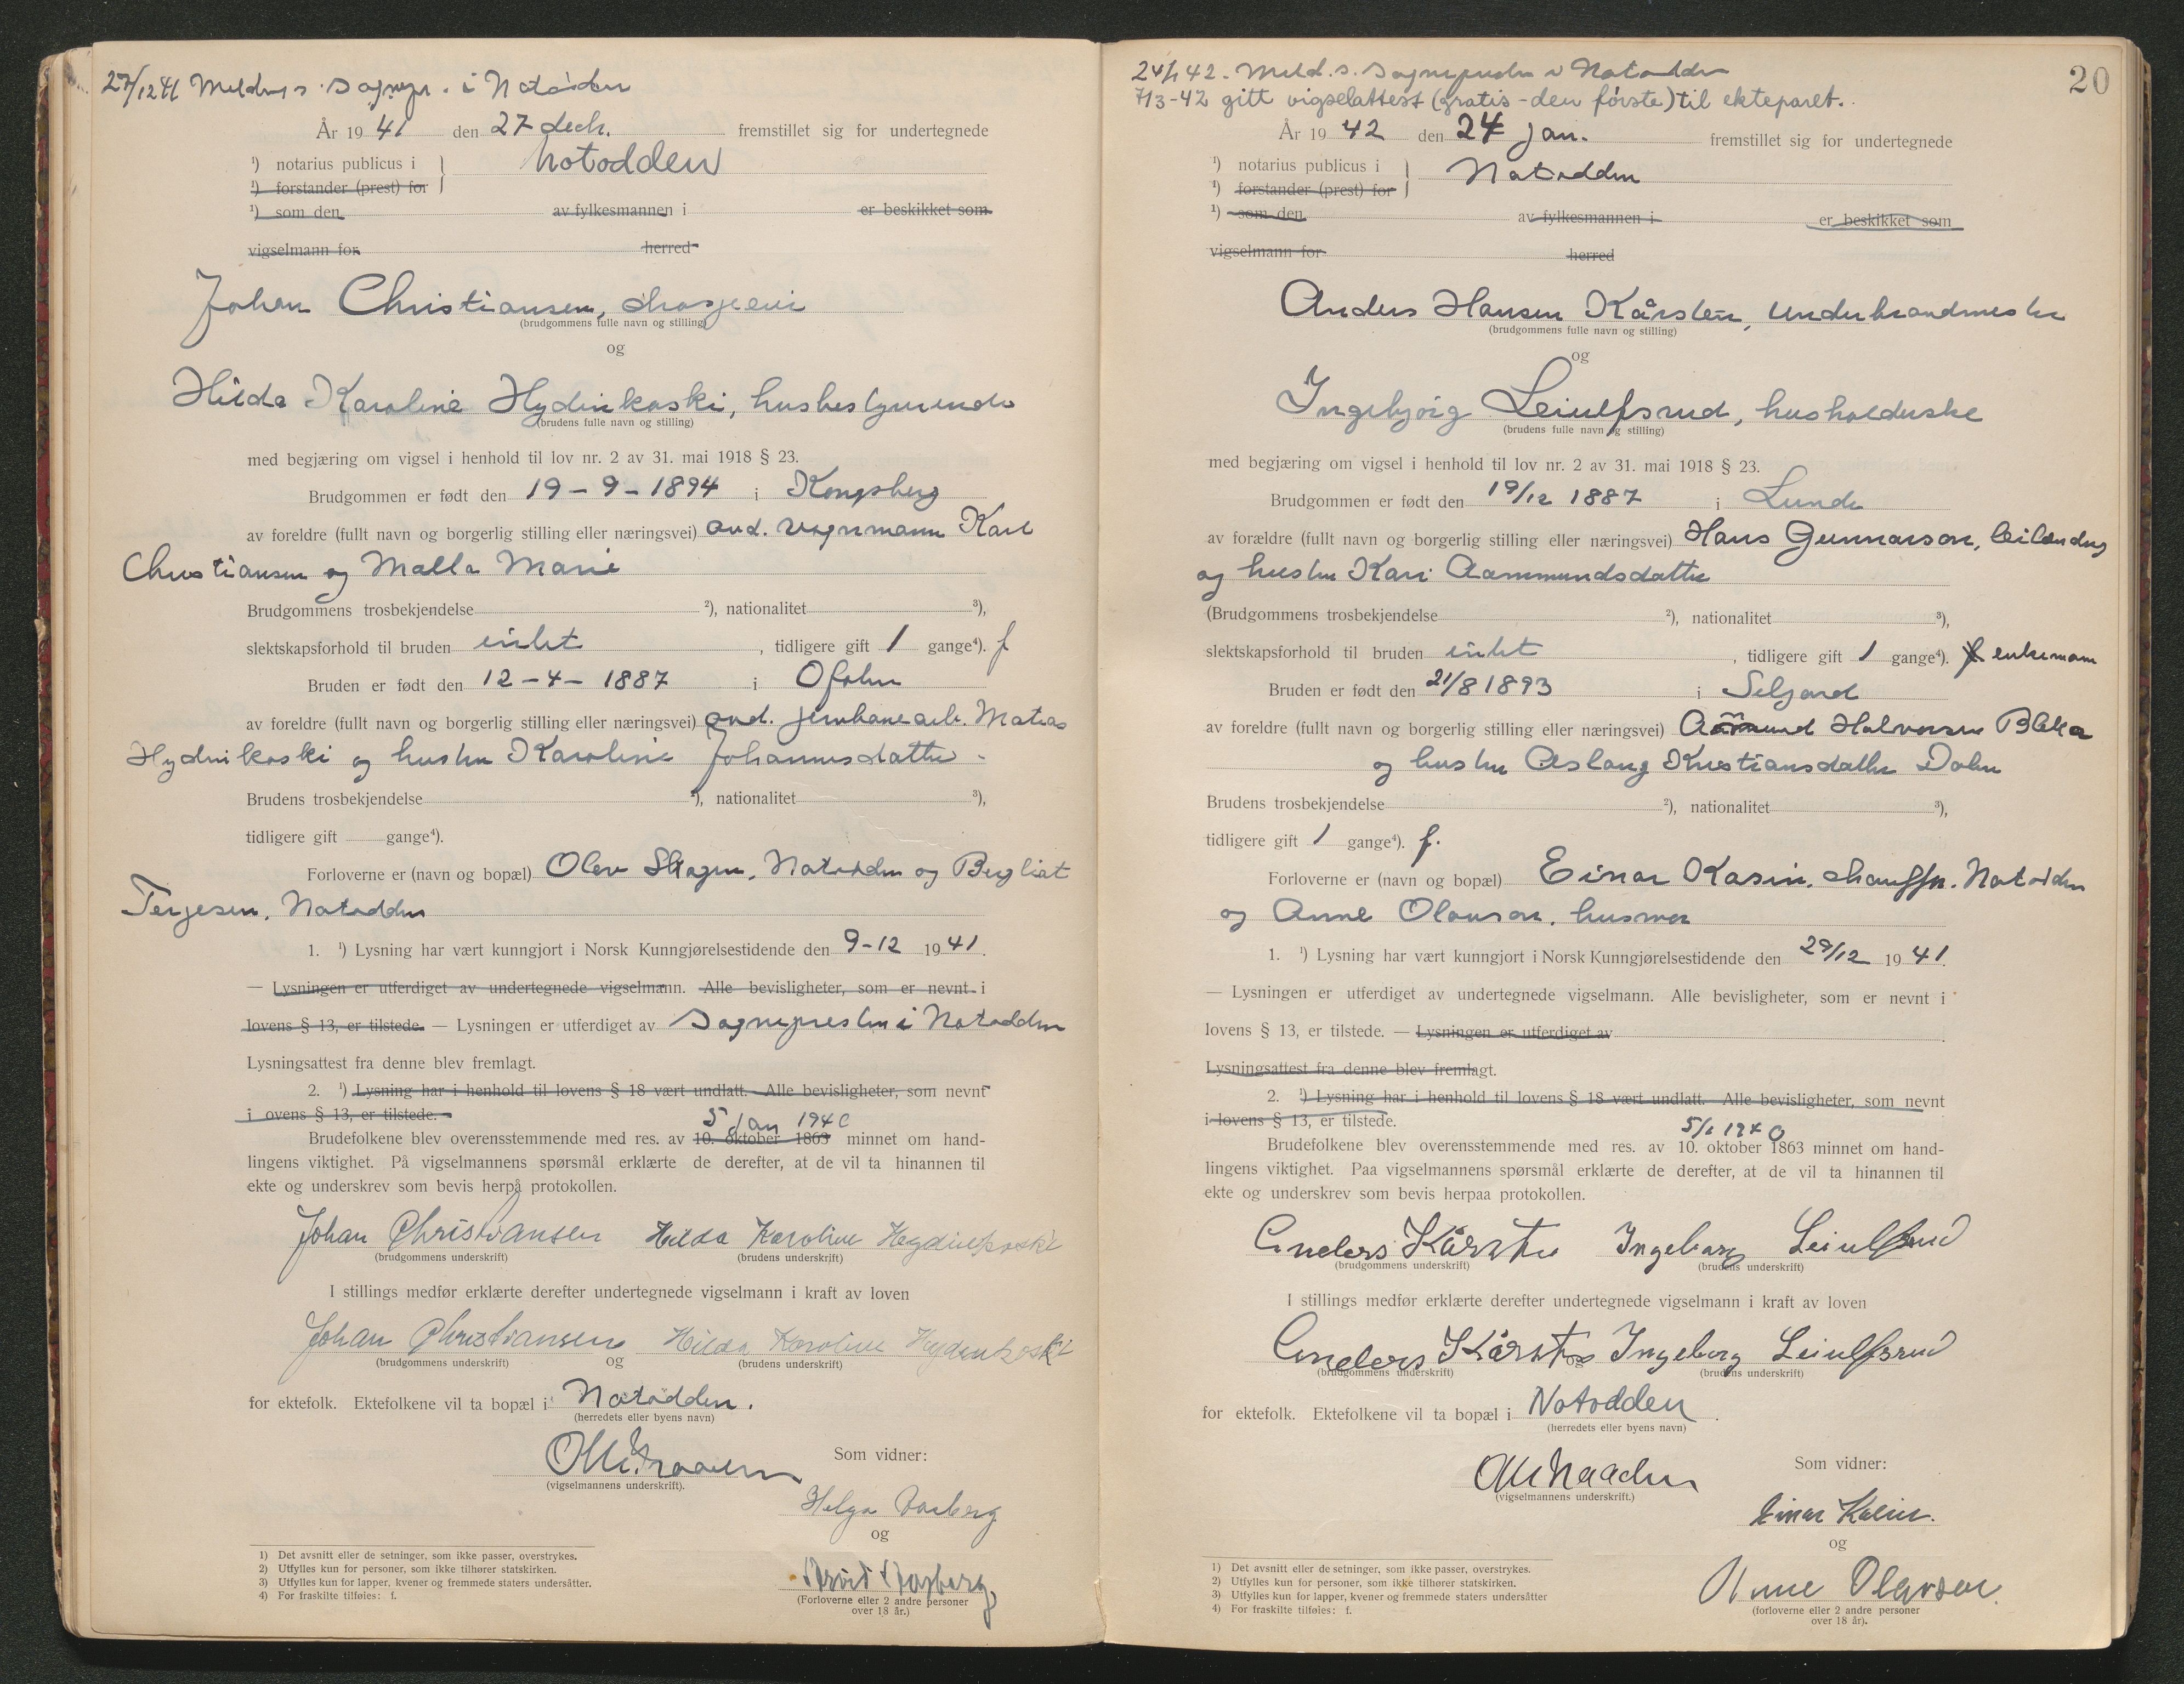 27/12 41 Meldt s. Sognepr. i Notodden
År 19 41 den 27 decb. fremstillet sig for undertegnede
¹) notarius publicus i } Notodden
¹) forstander (prest) for
¹) som den av fylkesmannen i er beskikket som
vigselmann for herred
Johan Christiansen,
(brudgommens fulle navn og stilling)
og
Hilda Karoline Hydinkoski, husbestyrerinde
(brudens fulle navn og stilling)
med begjæring om vigsel i henhold til lov nr. 2 av 31. mai 1918 § 23.
Brudgommen er født den 19-9-1894 i Kongsberg
av foreldre (fullt navn og borgerlig stilling eller næringsvei) avd. vognmann Karl
Christiansen og Malla Marie
Brudgommens trosbekjendelse ²), nationalitet ³),
slektskapsforhold til bruden intet, tidligere gift 1 gange⁴). f
Bruden er født den 12-4-1887 i Ofoten
av foreldre (fullt navn og borgerlig stilling eller næringsvei) avd. jernbanearb. Matias
Hydinkoski og hustru Karoline Johannesdatter -
Brudens trosbekjendelse ²), nationalitet ³),
tidligere gift gange⁴).
Forloverne er (navn og bopæl) Olav Skagen, Notodden og Bergliot
Terjesen, Notodden
1. ¹) Lysning har vært kunngjort i Norsk Kunngjørelsestidende den 9-12 1941.
— Lysningen er utferdiget av undertegnede vigselmann. Alle bevisligheter, som er nevnt i
lovens § 13, er tilstede. — Lysningen er utferdiget av Sognepresten i Notodden
Lysningsattest fra denne blev fremlagt.
2. ¹) Lysning har i henhold til lovens § 18 vært undlatt. Alle bevisligheter, som nevnt
i ovens § 13, er tilstede.
5 Jan 1940
Brudefolkene blev overensstemmende med res. av 10. oktober 1863 minnet om hand-
lingens viktighet. På vigselmannens spørsmål erklærte de derefter, at de vil ta hinannen til
ekte og underskrev som bevis herpå protokollen.
Johan Christiansen Hilda Karoline Heydinkoski
(brudgommens underskrift) (brudens underskrift)
I stillings medfør erklærte derefter undertegnede vigselmann i kraft av loven
Johan Christiansen Hilda Karoline Heydenkoski
(brudgommens underskrift) og (brudens underskrift)
for ektefolk. Ektefolkene vil ta bopæl i Notodden.
(herredets eller byens navn)
Som vidner:
(vigselmannens underskrift).
Helga
og
(Forloverne eller 2 andre personer
over 18 år.)
1) Det avsnitt eller de setninger, som ikke passer, overstrykes.
2) Utfylles kun for personer, som ikke tilhører statskirken.
3) Utfylles kun for lapper, kvener og fremmede staters undersåtter.
4) For fraskilte tilføies: f.
20
24/1 42. Meld. s. Sognepresten i Notodden
7/3-42 gitt vigselattest (gratis - den første) til ekteparet.
År 19 42 den 24 jan. fremstillet sig for undertegnede
¹) notarius publicus i } Notodden
¹) forstander (prest) for
¹) som den av fylkesmannen i er beskikket som
vigselmann for herred
Anders Hansen Kårsten, underbrandmester
(brudgommens fulle navn og stilling)
og
Ingebjørg Leiulfsrud, husholderske
(brudens fulle navn og stilling)
med begjæring om vigsel i henhold til lov nr. 2 av 31. mai 1918 § 23.
Brudgommen er født den 19/12 1887 i Lunde
av forældre (fullt navn og borgerlig stilling eller næringsvei) Hans Gunnarson, leilending
og hustru Kari Aammundsdatter
(Brudgommens trosbekjendelse ²), nationalitet ³),
slektskapsforhold til bruden intet, tidligere gift 1 gange⁴). f enkemann
Bruden er født den 21/8 1893 i Seljord
av foreldre (fullt navn og borgerlig stilling eller næringsvei) Aamund Halvorsen Bleka
og hustru Aslaug Kristiansdatter Dalen
Brudens trosbekjendelse ²), nationalitet ³),
tidligere gift 1 gange⁴). f.
Forloverne er (navn og bopæl) Einar Kasin, chauffør. Notodden
og Anne Olavson, husmor
1. ¹) Lysning har vært kunngjort i Norsk Kunngjørelsestidende den 29/12 1941.
— Lysningen er utferdiget av undertegnede vigselmann. Alle bevisligheter, som er nevnt i
lovens § 13, er tilstede. — Lysningen er utferdiget av
Lysningsattest fra denne blev fremlagt.
2. ¹) Lysning har i henhold til lovens § 18 vært undlatt. Alle bevisligheter, som nevnt
i lovens § 13, er tilstede.
5/1 1940
Brudefolkene blev overensstemmende med res. av 10. oktober 1863 minnet om hand-
lingens viktighet. Paa vigselmannens spørsmål erklærte de derefter, at de vil ta hinannen til
ekte og underskrev som bevis herpaa protokollen.
Anders Kårsten Ingeborg Leiulfsrud
(brudgommens underskrift) (brudens underskrift)
I stillings medfør erklærte derefter undertegnede vigselmann i kraft av loven
Anders Kårsten Ingeborg Leiulfsrud
(brudgommens underskrift) og (brudens underskrift)
for ektefolk. Ektefolkene vil ta bopæl i Notodden.
(herredets eller byens navn)
Som vidner:
(vigselmannens underskrift.)
Einar Kasin.
og
Anne Olavson.
(forloverne eller 2 andre personer
over 18 år).
1) Det avsnitt eller de setninger, som ikke passer, overstrykes.
2) Utfylles kun for personer, som ikke tilhører statskirken.
3) Utfylles kun for lapper, kvener og fremmede staters undersåtter
4) For fraskilte tilføies: f.